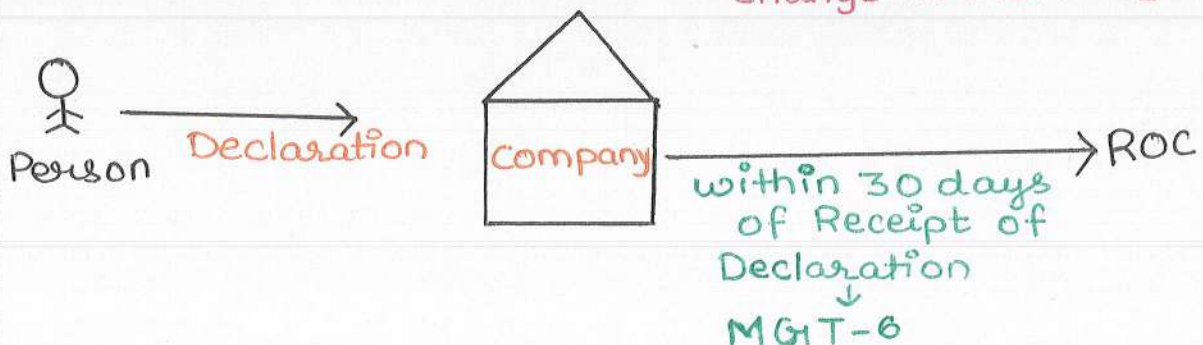 Person
Declaration
Company
ROC
within 30 days
of Receipt of
Declaration
↓
MGT-6